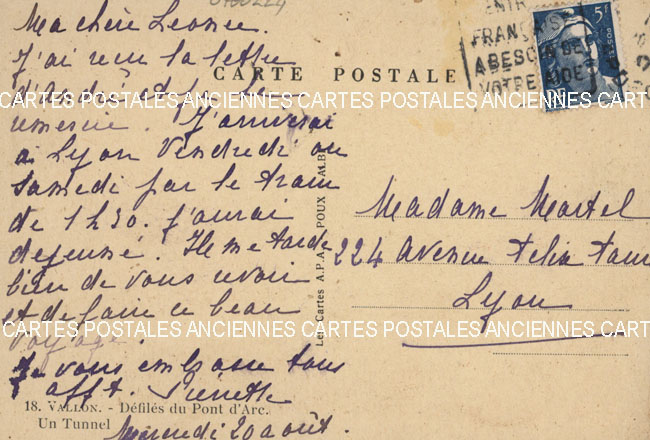 Ma chère Leonce.
J'ai reçu la lettre
J'arriverai
à Lyon Vendredi ou
Samedi par le train
de 1 h 30. J'aurai
dejeuné. Il me tarde
bien de vous revoir
et de faire ce beau
voyage.
Je vous embrasse tous
afft. Pierrette
Mercredi 20 août.
CARTE POSTALE
FRANÇAISE
A BESOIN DE
VOTRE AIDE
5F
Madame Martel
224 Avenue Felix Faure
Lyon
Les Cartes A.P.A. POUX ALBI
18. VALLON. - Défilés du Pont d'Arc.
Un Tunnel
CARTES POSTALES ANCIENNES CARTES POSTALES ANCIENNES CARTES POSTALES ANCIENNES CART
CARTES POSTALES ANCIENNES CARTES POSTALES ANCIENNES CARTES POSTALES ANCIENNES CART